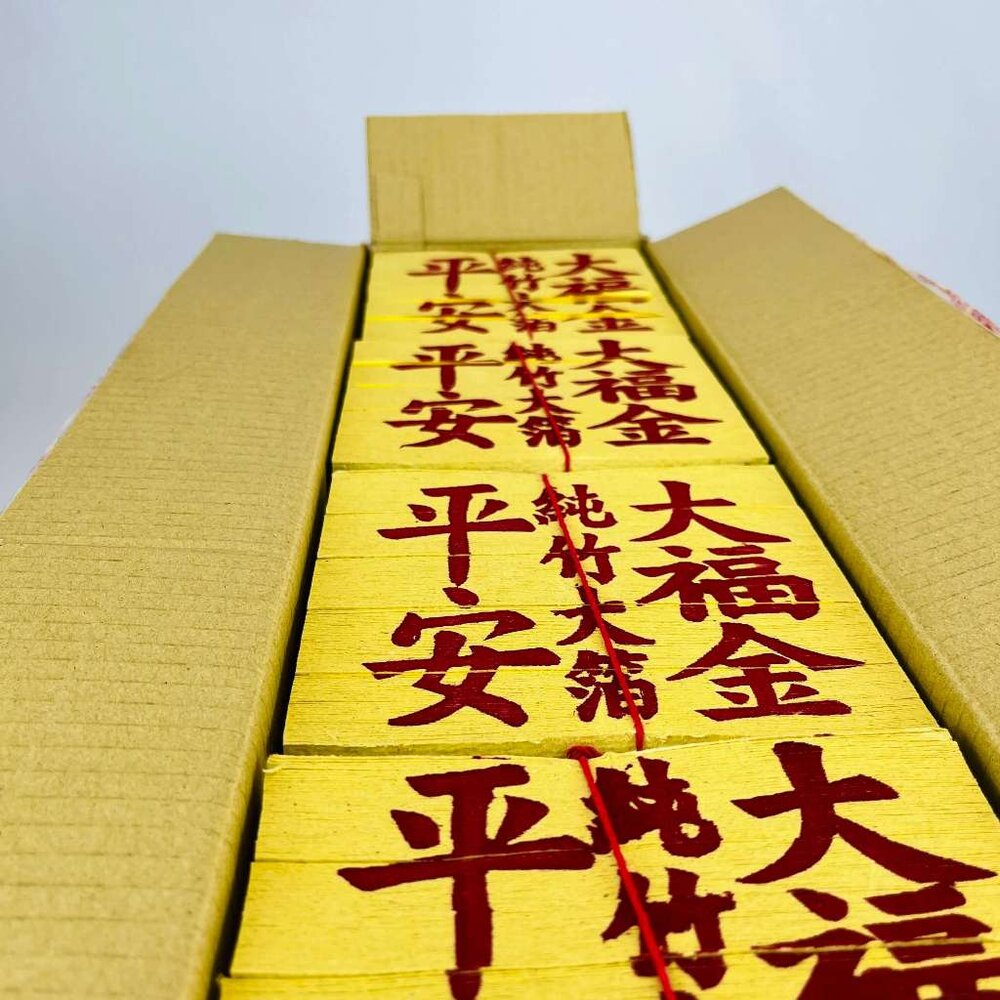 大福金
純竹大箔
平安
大福金
純竹大箔
平安
大福金
純竹大箔
平安
大福
純竹
平